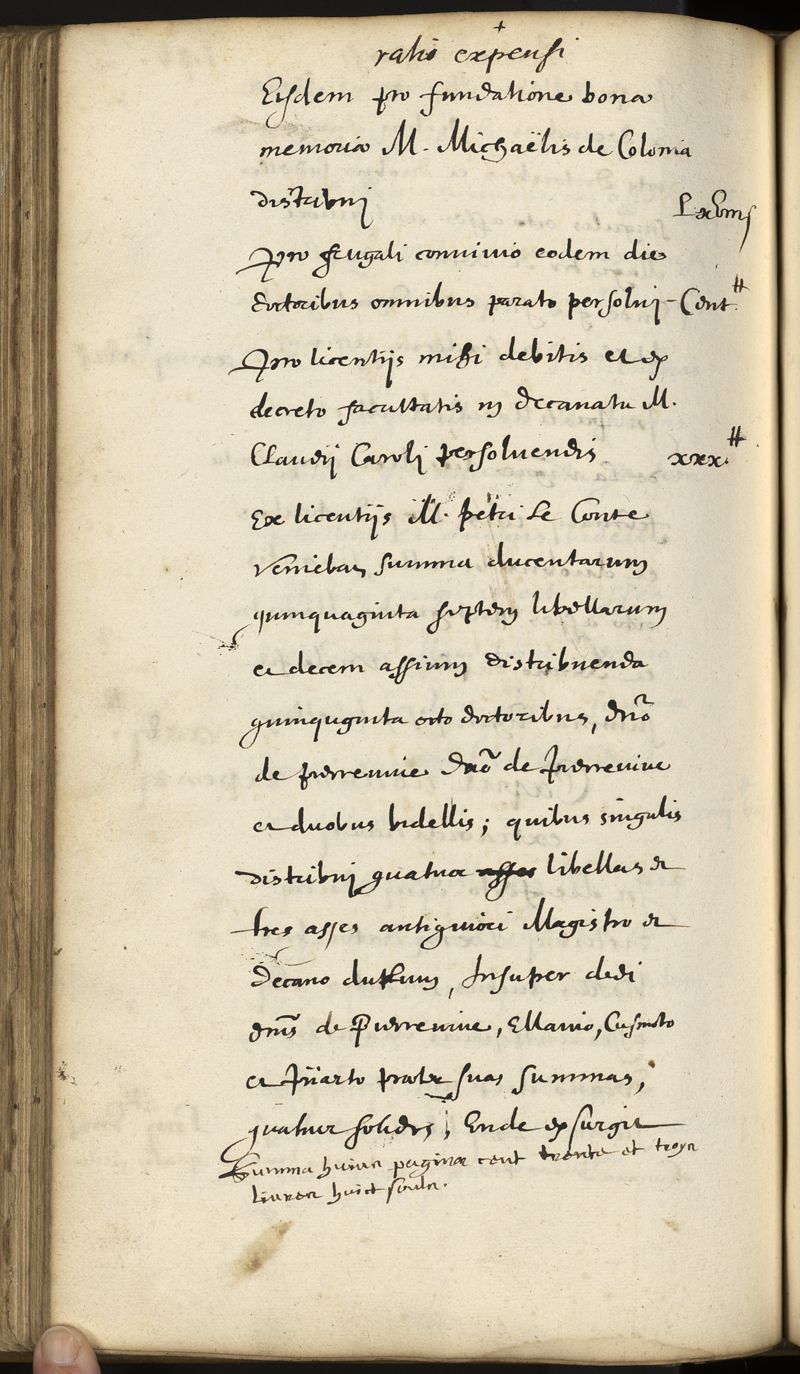 +
ratio expensi
Eisdem pro fundatione bonæ
memoriæ M. Michaëlis de Colonia
distribui
pro frugali convivio eodem die
doctoribus omnibus parato persolvi - Cent ₶
pro licentijs mihi debitis et ex
decreto facultatis in decanatu M.
Claudij Caroli persolvendis xxx ₶
Ex licentijs M. petri Le Conte
veniebat summa ducentarum
quinquaginta septem libellarum
et decem assium distribuenda
quinquginta octo doctoribus, dño
de pierrevive dño de pierrevive
et duobus bidellis; quibus singulis
distribui quatuor asses libellas et
tres asses antiquiori Magistro et
Decano duplum, Insuper dedi
dnis de Pierrevive, Ellanio,
et præter suas summas,
quatuor solidos; Unde exsurgit
Summa huius paginæ cent trente et troys
livres huict soulz.